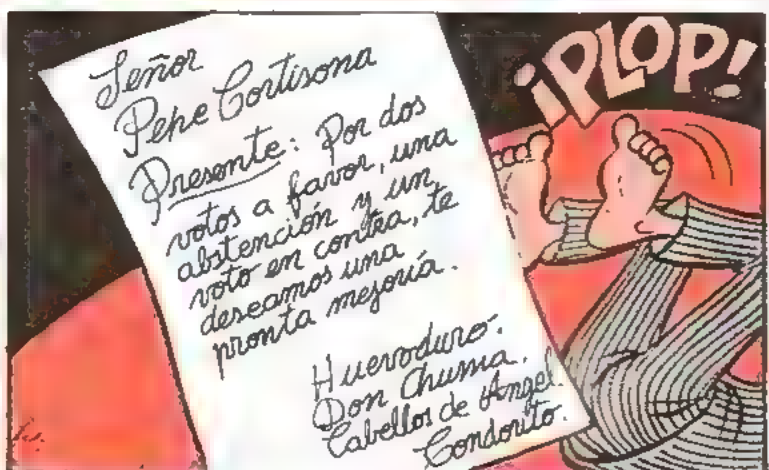 Señor
Pepe Cortisona
Presente: Por dos
votos a favor, una
abstención y un
voto en contra, te
deseamos una
pronta mejoría.
Huevoduro.
Don Chuma.
Cabellos de Angel.
Condorito.
¡PLOP!